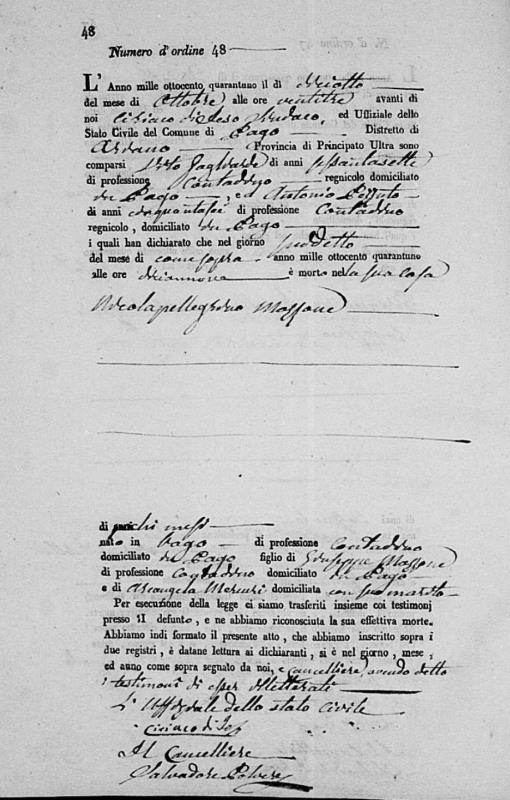 48
Numero d'ordine 48
L' Anno mille ottocento quarantuno il dì diciotto
del mese di Ottobre alle ore ventitre avanti di
noi Ciriaco di Leso Sindaco, ed Uffiziale dello
Stato Civile del Comune di Pago Distretto di
Ariano Provincia di Principato Ultra sono
comparsi Vito Pagliarde di anni
di professione Contadino regnicolo domiciliato
in Pago, ed Antonio
di anni cinquantasei di professione Contadino
regnicolo, domiciliato in Pago
i quali han dichiarato che nel giorno sudetto
del mese di come sopra anno mille ottocento quarantuno
alle ore diciannove è morto nella sua casa
Nicolapellegrino Massone
di pochi mesi
nato in Pago di professione Contadino
domiciliato in Pago figlio di Giuseppe Massone
di professione Contadino domiciliato in Pago
e di Arcangela Mercuri domiciliata con suo marito
Per esecuzione della legge ci siamo trasferiti insieme coi testimonj
presso il defunto, e ne abbiamo riconosciuta la sua effettiva morte.
Abbiamo indi formato il presente atto, che abbiamo inscritto sopra i
due registri, è datane lettura ai dichiaranti, si è nel giorno, mese,
ed anno come sopra segnato da noi, e cancelliere, avendo detto
i testimoni di esser illetterati
L'Uffiziale dello stato civile
Ciriaco di
Il Cancelliere
Salvadore Polvere